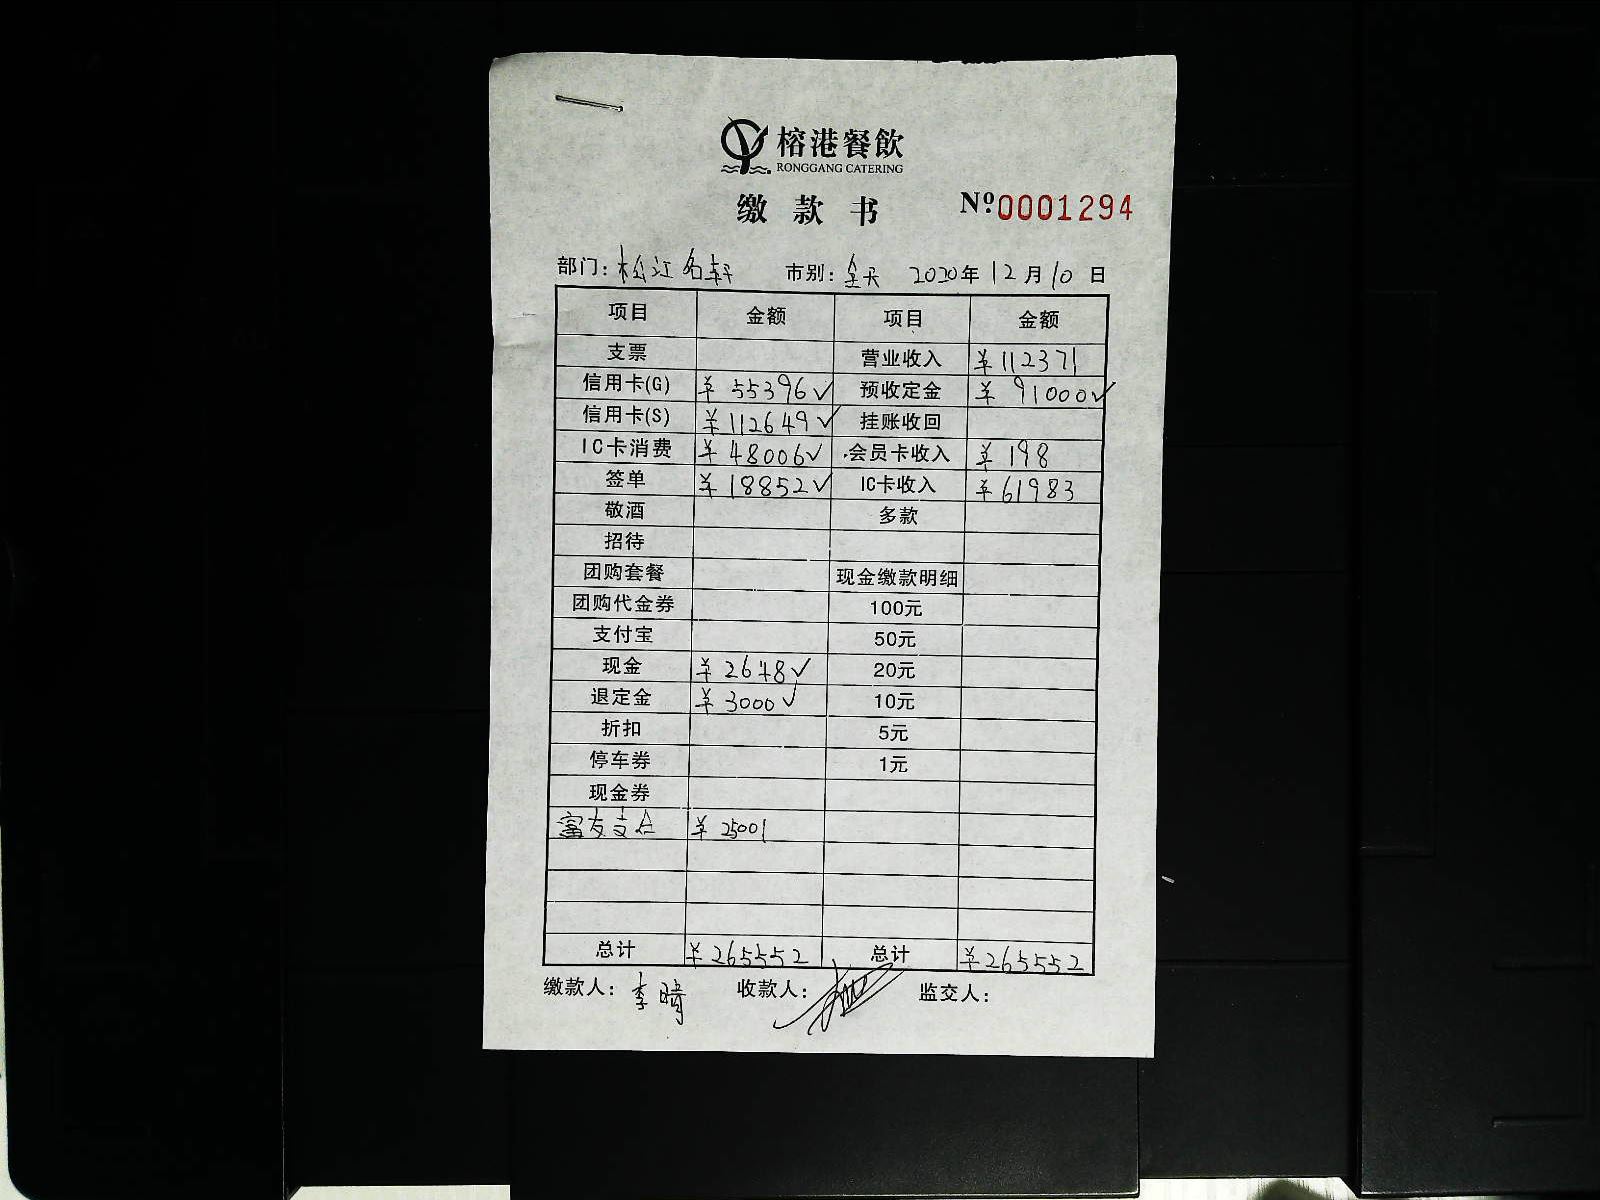 榕港餐飲
RONGGANG CATERING
缴款书 Nº0001294
部门：松江名轩 市别：全天 2020年12月10日
项目 金额 项目 金额
支票 营业收入 ¥112371
信用卡(G) ¥55396✓ 预收定金 ¥91000✓
信用卡(S) ¥112649✓ 挂账收回
IC卡消费 ¥48006✓ 会员卡收入 ¥198
签单 ¥18852✓ IC卡收入 ¥61983
敬酒 多款
招待
团购套餐 现金缴款明细
团购代金券 100元
支付宝 50元
现金 ¥2648✓ 20元
退定金 ¥3000✓ 10元
折扣 5元
停车券 1元
现金券
富友支 ¥25001
总计 ¥265552 总计 ¥265552
缴款人：李晴 收款人： 监交人：